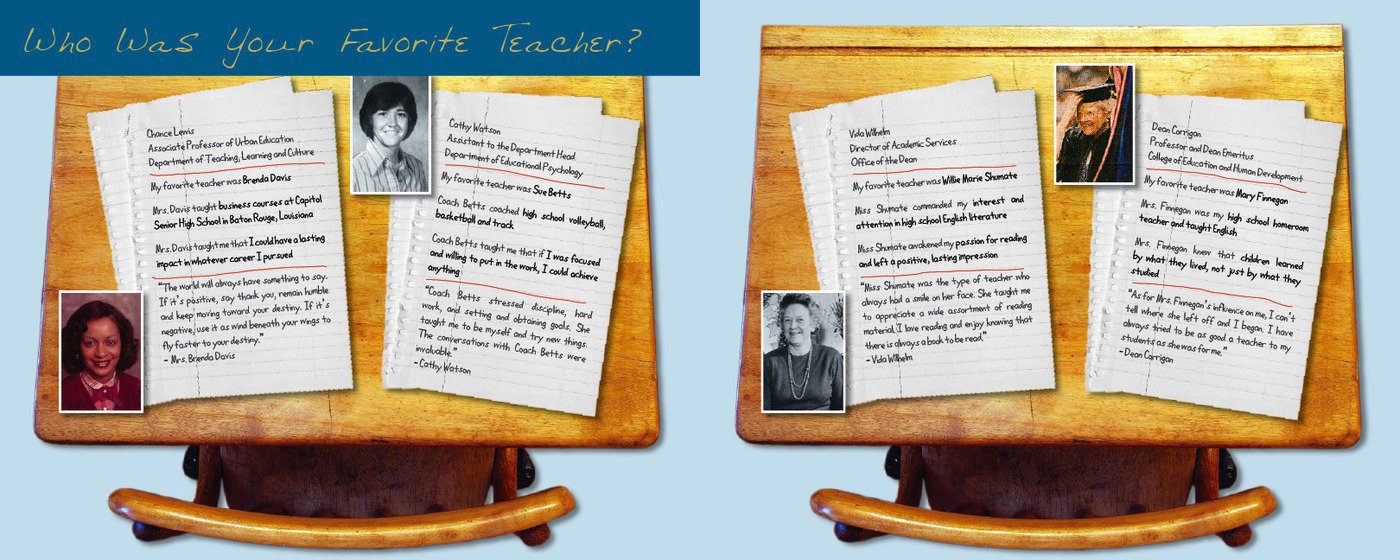 Who Was Your Favorite Teacher?
Chance Lewis
Associate Professor of Urban Education
Department of Teaching, Learning and Culture
My favorite teacher was Brenda Davis
Mrs. Davis taught business courses at Capitol
Senior High School in Baton Rouge, Louisiana
Mrs. Davis taught me that I could have a lasting
impact in whatever career I pursued
"The world will always have something to say.
If it's positive, say thank you, remain humble
and keep moving toward your destiny. If it's
negative, use it as wind beneath your wings to
fly faster to your destiny."
- Mrs. Brenda Davis
Cathy Watson
Assistant to the Department Head
Department of Educational Psychology
My favorite teacher was Sue Betts
Coach Betts coached high school volleyball,
basketball and track
Coach Betts taught me that if I was focused
and willing to put in the work, I could achieve
anything
"Coach Betts stressed discipline, hard
work, and setting and obtaining goals. She
taught me to be myself and try new things.
The conversations with Coach Betts were
invaluable."
- Cathy Watson
Vida Wilhelm
Director of Academic Services
Office of the Dean
My favorite teacher was Willie Marie Shumate
Miss Shumate commanded my interest and
attention in high school English literature
Miss Shumate awakened my passion for reading
and left a positive, lasting impression
"Miss Shumate was the type of teacher who
always had a smile on her face. She taught me
to appreciate a wide assortment of reading
material. I love reading and enjoy knowing that
there is always a book to be read."
- Vida Wilhelm
Dean Corrigan
Professor and Dean Emeritus
College of Education and Human Development
My favorite teacher was Mary Finnegan
Mrs. Finnegan was my high school homeroom
teacher and taught English
Mrs. Finnegan knew that children learned
by what they lived, not just by what they
studied
"As for Mrs. Finnegan's influence on me, I can't
tell where she left off and I began. I have
always tried to be as good a teacher to my
students as she was for me."
- Dean Corrigan